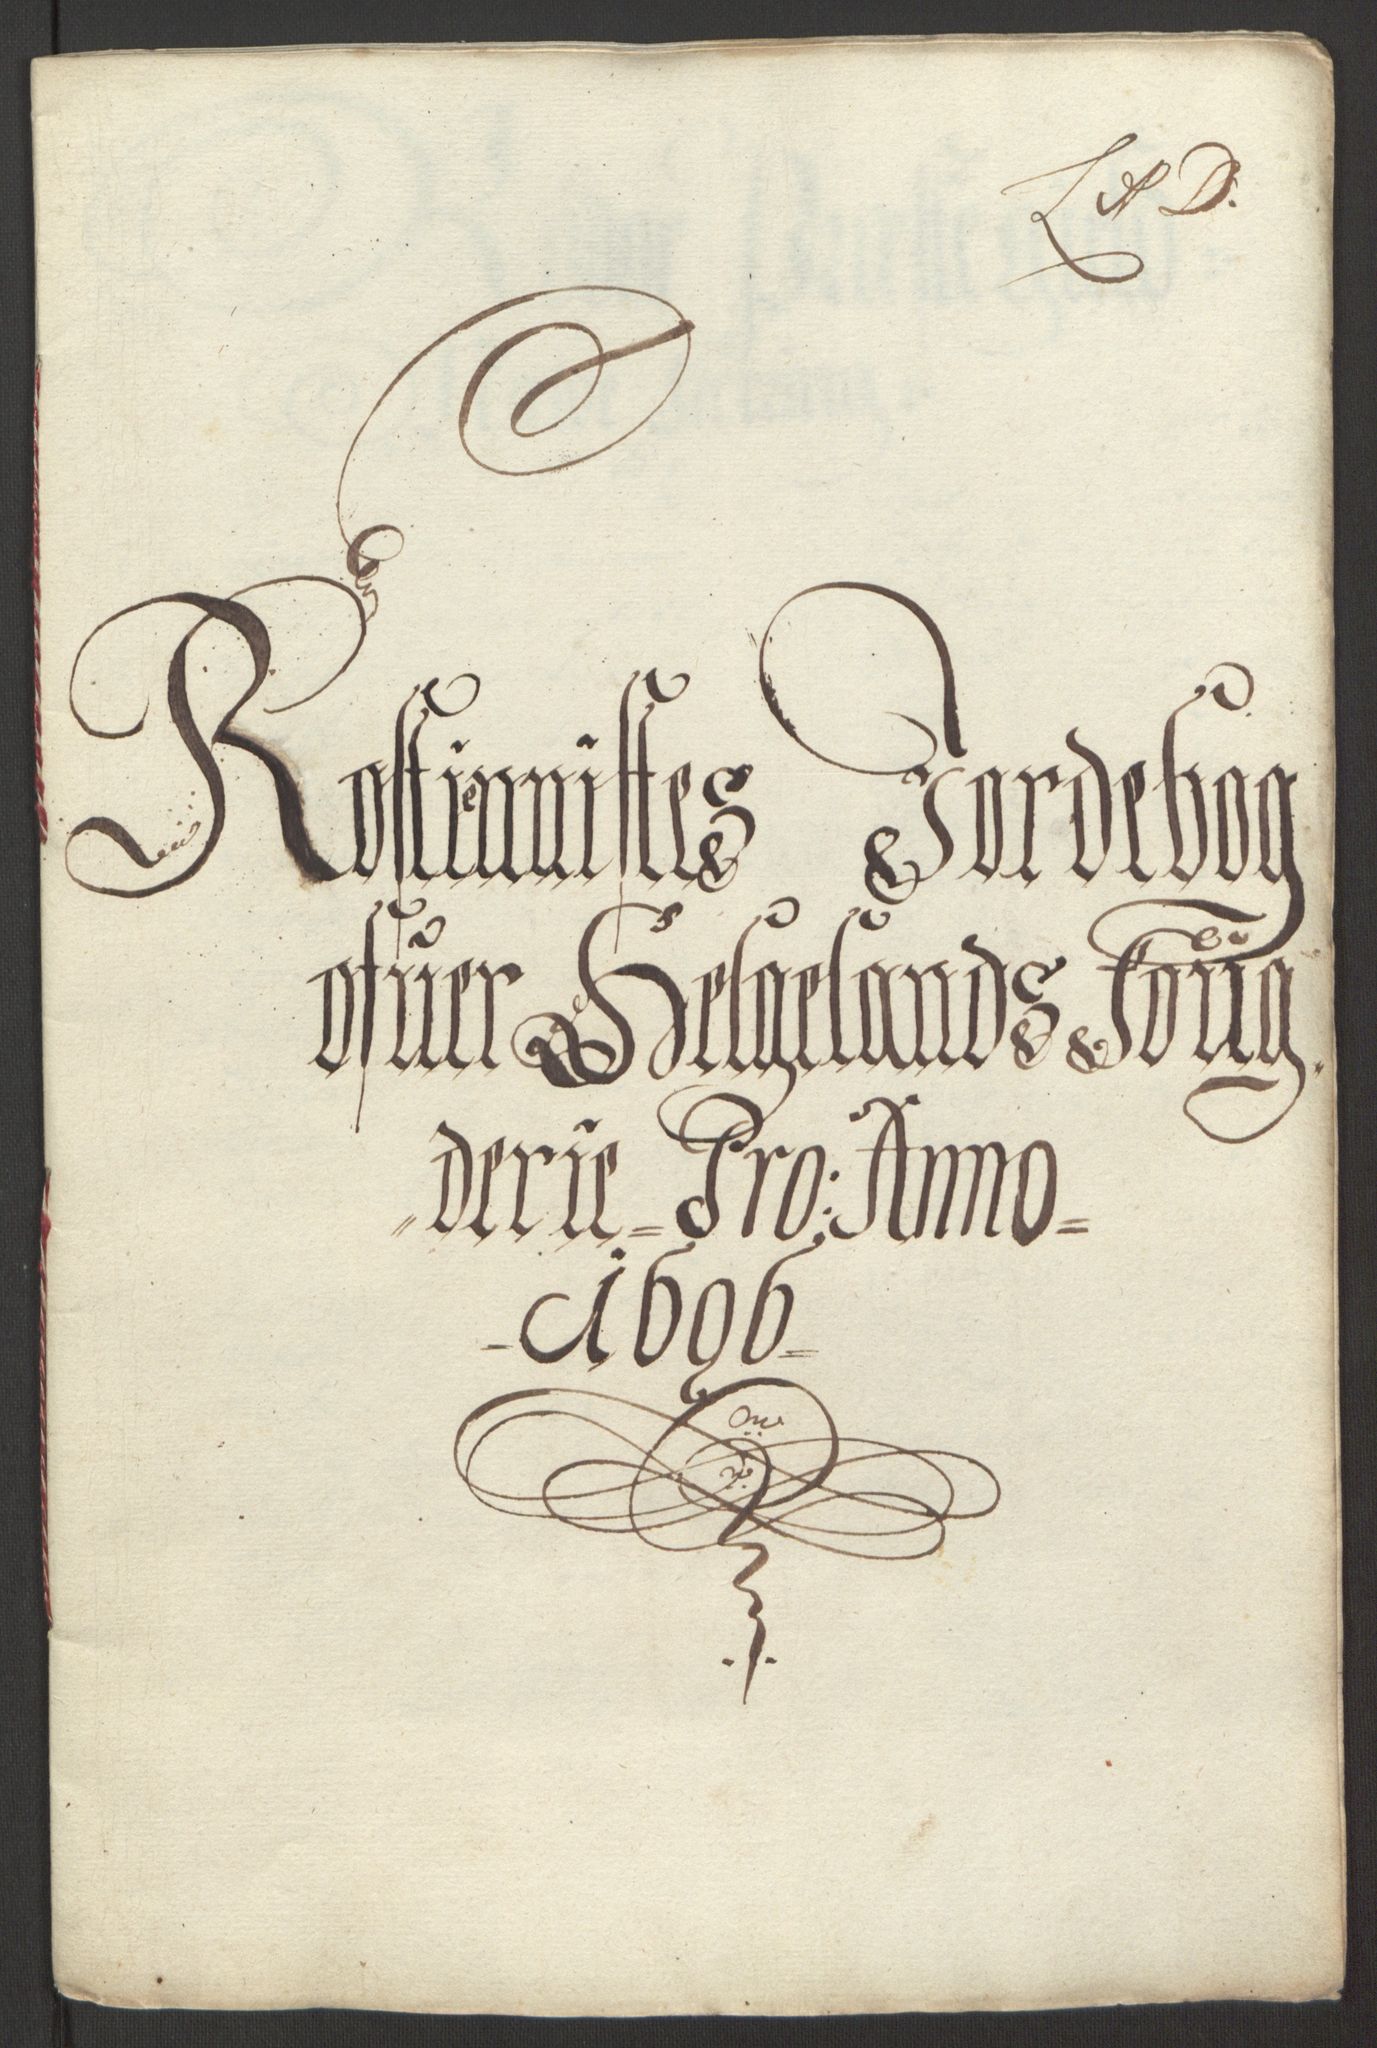 L A D.
Rostienistes Jordebog
ofuer Helgelands Foug
derie Pro: Anno
1696